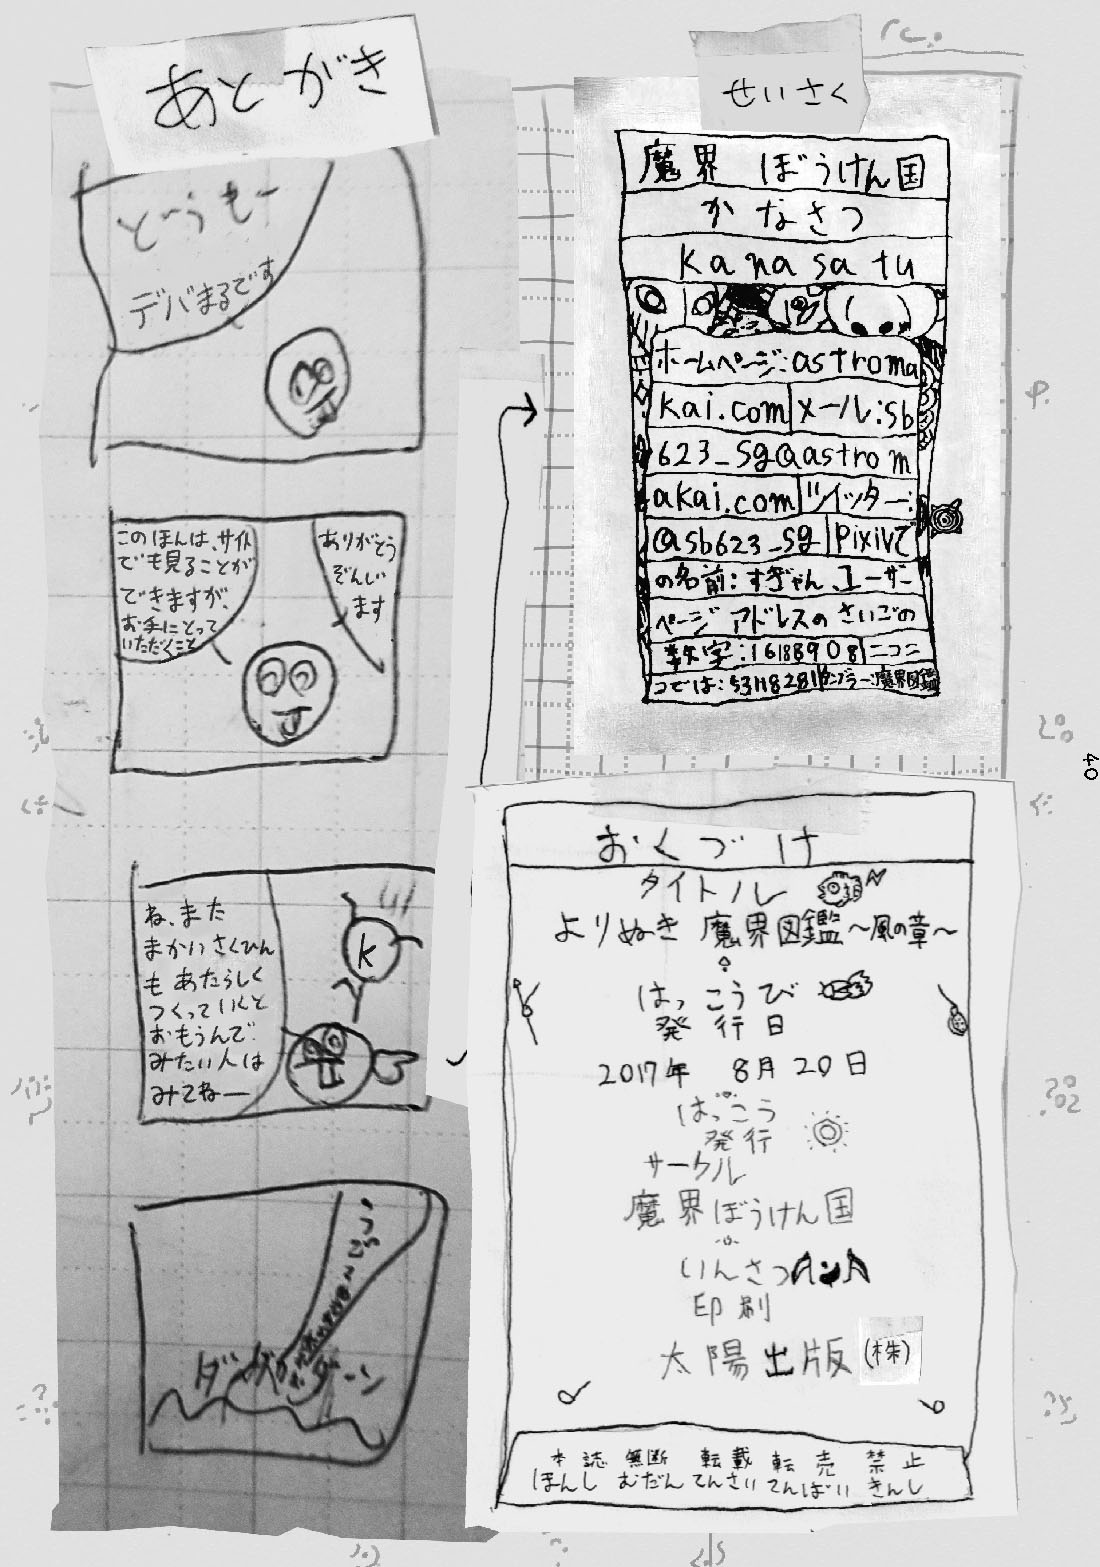 あとがき
どうもー
デバまるです
このほんは、サイト
でも見ることが
できますが、
お手にとって
いただくこと
ありがとう
ぞんじ
ます
ね、また
まかいさくひん
もあたらしく
つくっていくと
おもうんで
みたい人は
みてねー
k
せいさく
魔界 ぼうけん国
かなさつ
kanasatu
ホームページ:astroma
kai.com メール:sb
623_sg@astrom
akai.com ツイッター:
@sb623_sg pixivで
の名前:すぎゃん、ユーザー
ページアドレスのさいごの
数字:16188908 ニコニ
コでは:53118281 タンブラー:魔界図鑑
40
おくづけ
タイトル
よりぬき 魔界図鑑〜風の章〜
はっこうび
発行日
2017年 8月20日
はっこう
発行
サークル
魔界ぼうけん国
いんさつ
印刷
太陽出版(株)
本誌 無断 転載 転売 禁止
ほんし むだん てんさい てんばい きんし